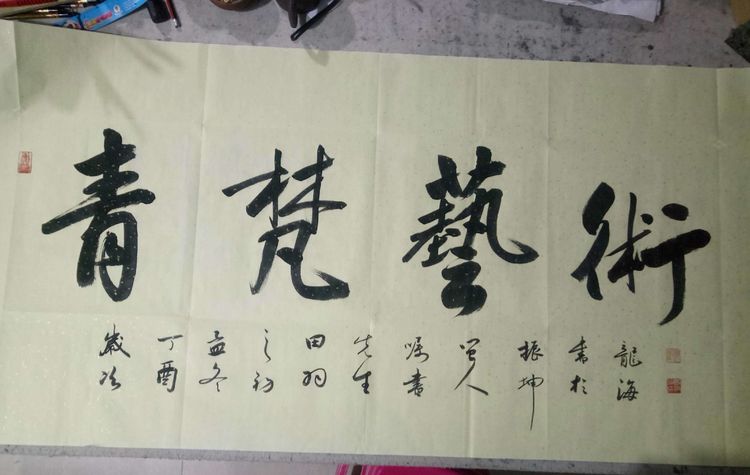 青梵藝術
歲次
丁酉
孟冬
之初
田羽
先生
嘱書
人
振坤
書於
龍海